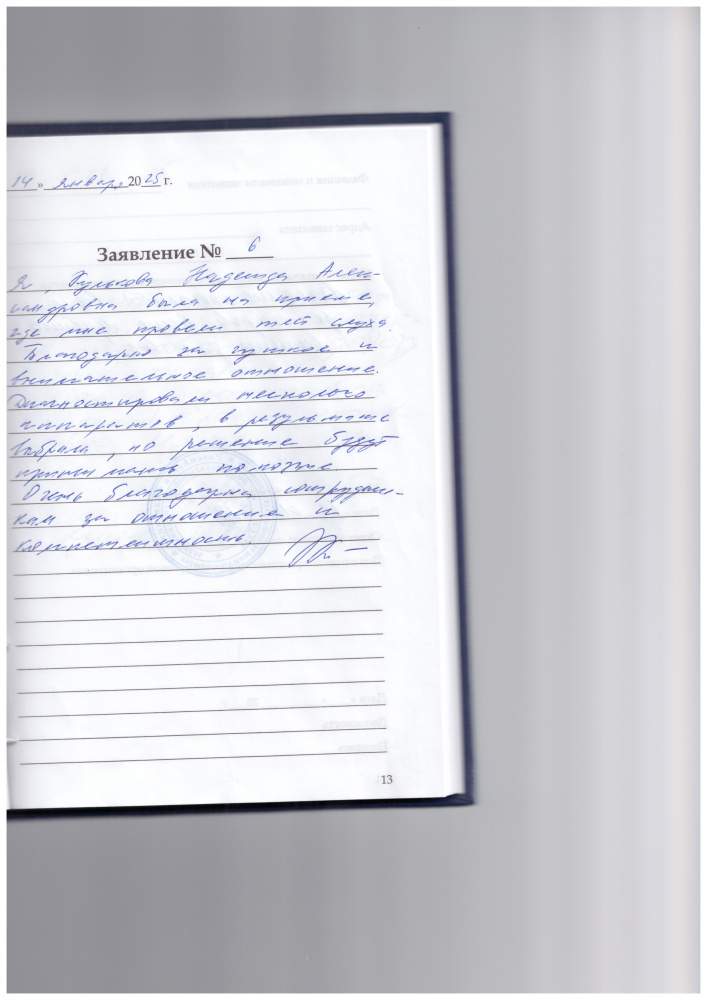 14 » январ 2025 г.
Заявление № 6
Я, Надежда Алек-
сандровна была на приеме,
где мне провели тест слуха.
Благодарю за чуткое и
внимательное отношение.
Диагностировали несколько
аппаратов, в результате
выбрала, но решение будут
принимать позже.
Очень благодарна сотрудни-
кам за отношение и
компетентность.
13